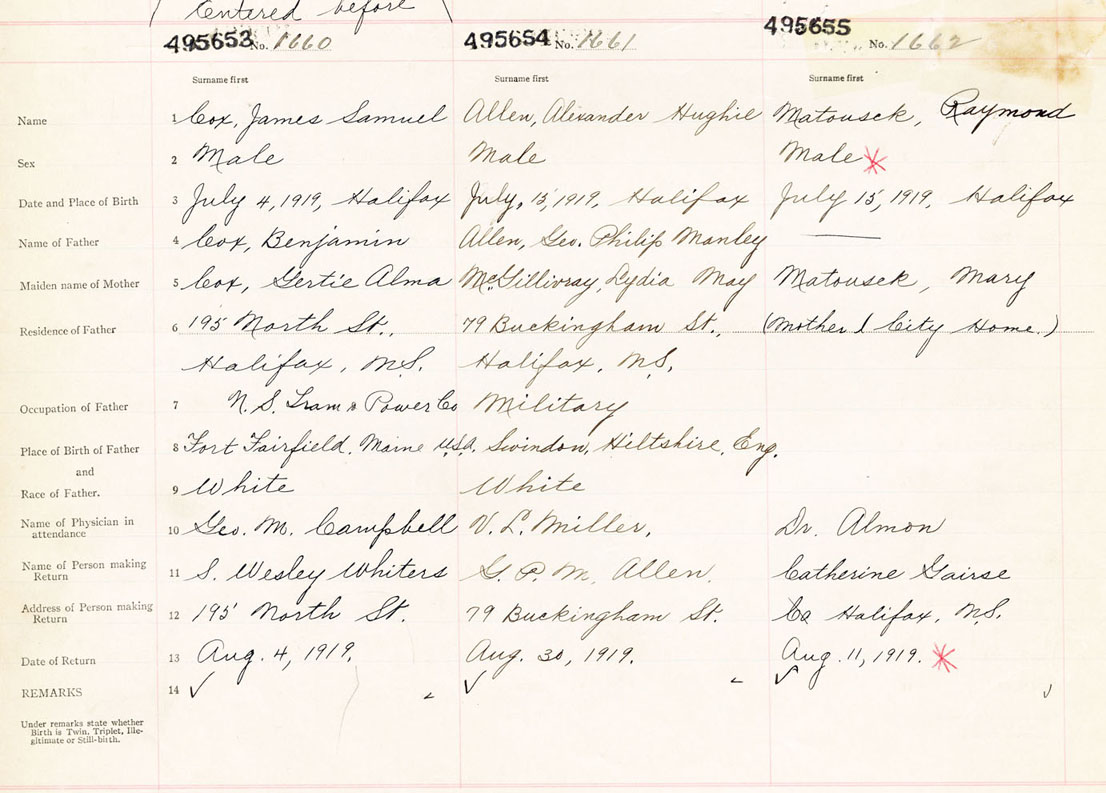 (Entered before
495653 No. 1660 495654 No. 1661 495655 No. 1662
Surname first Surname first Surname first
Name 1 Cox, James Samuel Allen, Alexander Hughie Matousek, Raymond
Sex 2 Male Male Male
Date and Place of Birth 3 July 4, 1919, Halifax July, 15, 1919, Halifax July 15, 1919, Halifax
Name of Father 4 Cox, Benjamin Allen, Geo. Philip Manley
Maiden name of Mother 5 Cox, Gertie Alma McGillivray, Lydia May Matousek, Mary
Residence of Father 6 195 North St., 79 Buckingham St., (Mother) City Home.)
Halifax, N.S. Halifax, N.S.
Occupation of Father 7 N.S. Tram & Power Co Military
Place of Birth of Father 8 Fort Fairfield, Maine U.S.A. Swindon, Hiltshire, Eng.
and
Race of Father. 9 White White
Name of Physician in attendance 10 Geo. M. Campbell V. L. Miller, Dr. Almon
Name of Person making Return 11 S. Wesley Whiters G. P. M. Allen. Catherine Gairse
Address of Person making Return 12 195 North St. 79 Buckingham St. Co Halifax, N.S.
Date of Return 13 Aug. 4, 1919. Aug. 30, 1919. Aug. 11, 1919.
REMARKS 14
Under remarks state whether
Birth is Twin, Triplet, Ille-
gitimate or Still-birth.